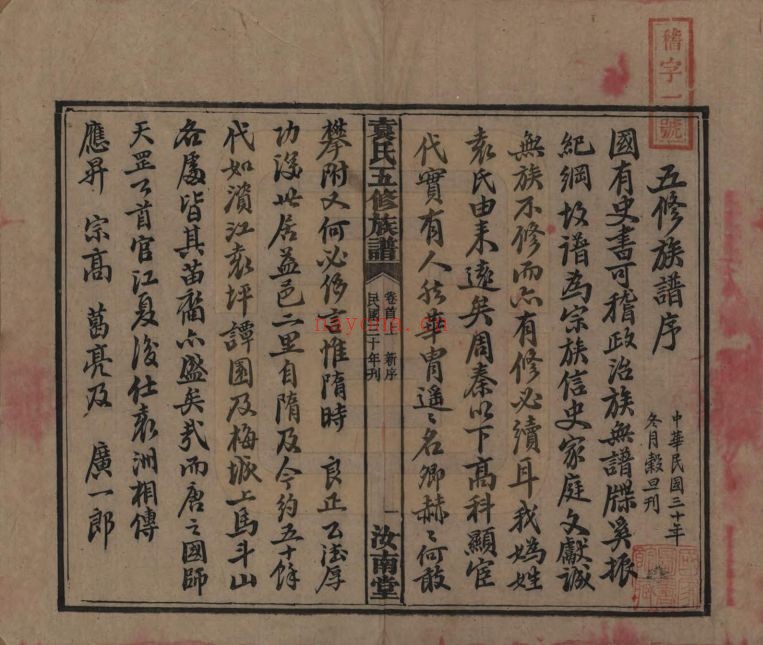 稽字一號
五修族譜序
中華民國三十年
冬月穀旦刊
國有史書可稽政治族無譜牒奚振
紀綱故譜為宗族信史家庭文獻誠
無族不修而亦有修必續耳我媯姓
袁氏由来遠矣周秦以下高科顯宦
代實有人然華胄遥々名卿赫々何敢
袁氏五修族譜
卷首上 新序
民國三十年刊
一
汝南堂
攀附又何必侈言惟隋時 良正公德厚
功深卜居益邑二里自隋及今約五十餘
代如濱江袁坪譚園及梅城上馬斗山
各處皆其苗裔亦盛矣哉而唐之國師
天罡公首官江夏後仕袁洲相傳
應昇 宗高 葛亮及 廣一郎